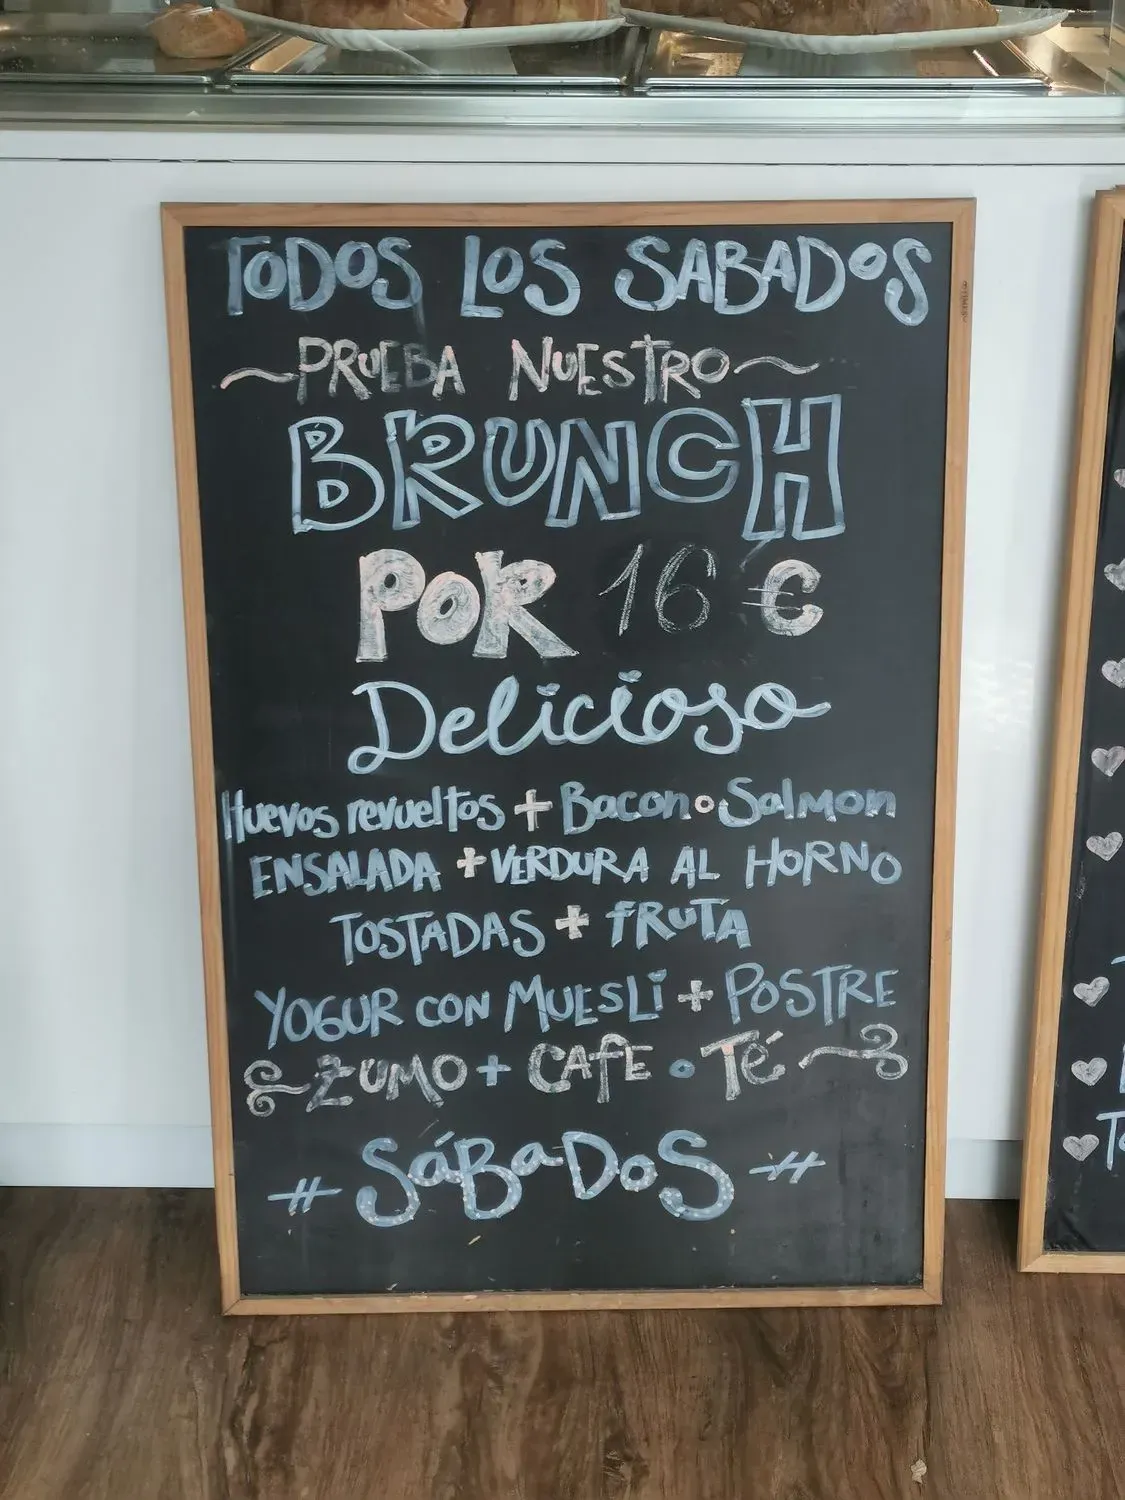 TODOS LOS SABADOS
~PRUEBA NUESTRO~
BRUNCH
POR 16 €
Delicioso
Huevos revueltos + Bacon o Salmon
ENSALADA + VERDURA AL HORNO
TOSTADAS + FRUTA
YOGUR CON MUESLI + POSTRE
ZUMO + CAFE o Té
# SÁBADOS #